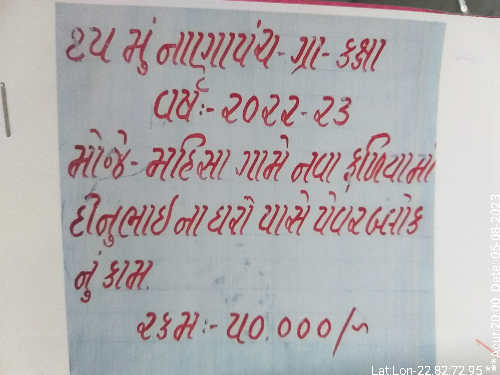 ૧૫ મું નાણાપંચ- ગ્રા- કક્ષા
વર્ષઃ- ૨૦૨૨-૨૩
મોજે- મહિસા ગામે નવા ફળિયામાં
દીનુભાઇ ના ઘરો પાસે પેવરબ્લોક
નું કામ.
રકમઃ- ૫૦.૦૦૦/~
Lat Lon-22.82:72.95
Date: 05-08-2023